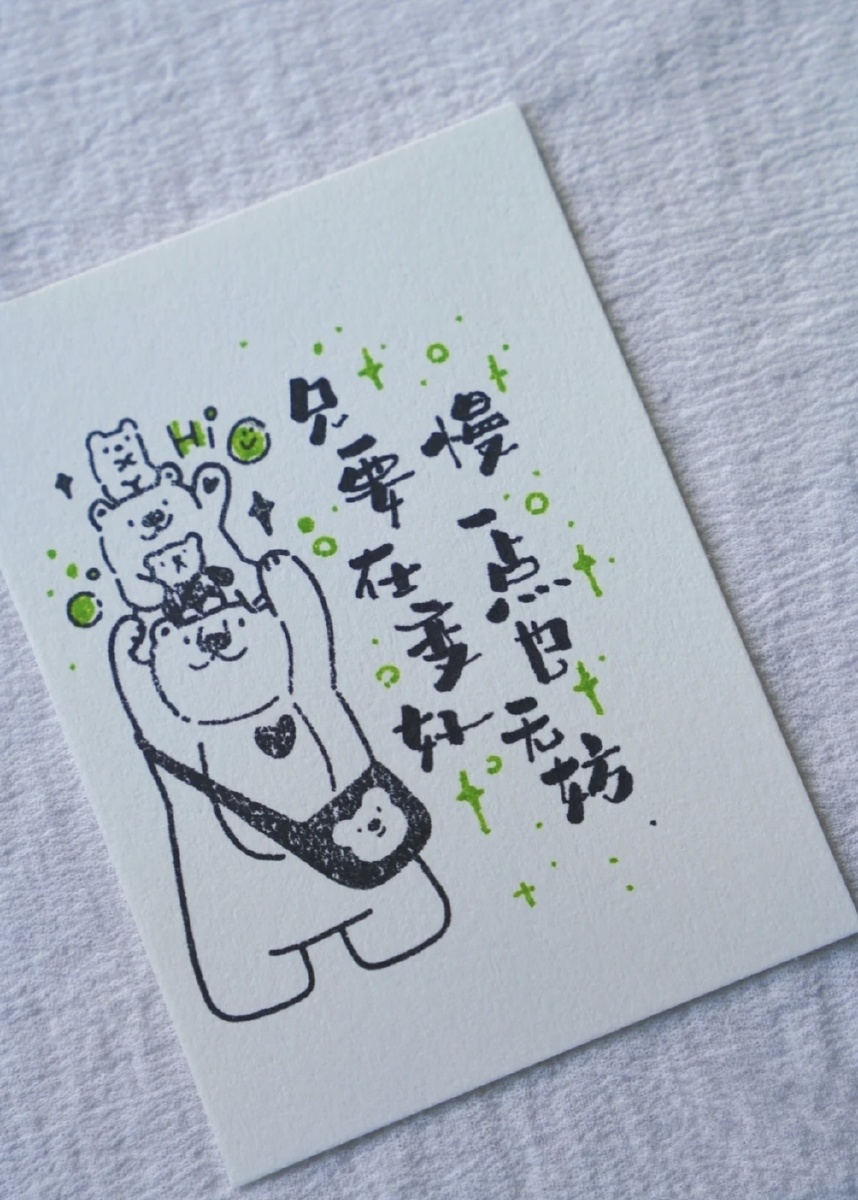 Hi
只要在变好
慢一点也无妨